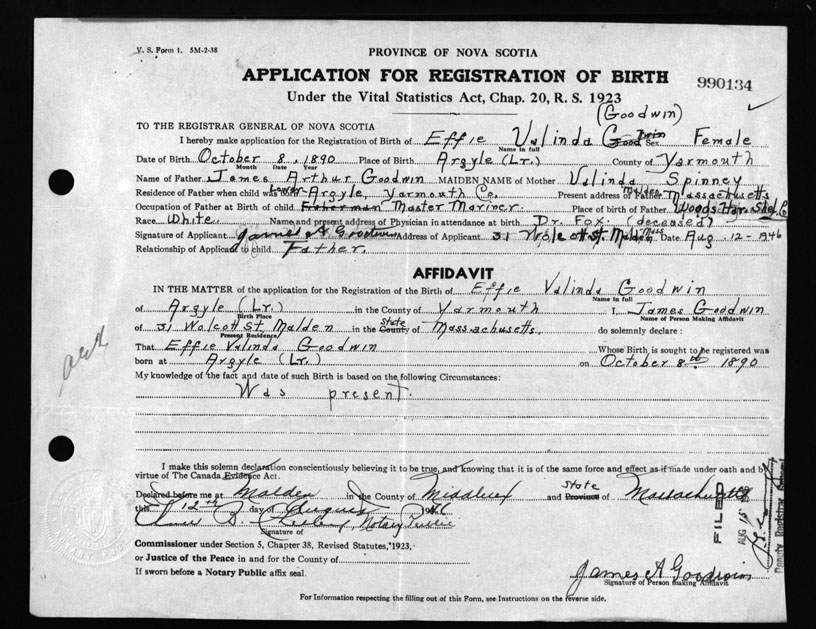 V. S. Form 1. 5M-2-38
PROVINCE OF NOVA SCOTIA
APPLICATION FOR REGISTRATION OF BIRTH
990134
Under the Vital Statistics Act, Chap. 20, R. S. 1923
(Goodwin)
TO THE REGISTRAR GENERAL OF NOVA SCOTIA
I hereby make application for the Registration of Birth of Effie Valinda Goodwin Sex Female
Name in full
Date of Birth October 8, 1890 Place of Birth Argyle (Lr.) County of Yarmouth
Month Date Year
Name of Father James Arthur Goodwin MAIDEN NAME of Mother Valinda Spinney
Residence of Father when child was born Lower Argyle, Yarmouth Co. Present address of Father Malden Massachusetts
Occupation of Father at Birth of child Fisherman Master Mariner. Place of birth of Father Woods Har. Shel. C
Race White Name and present address of Physician in attendance at birth Dr. Fox. (deceased)
Signature of Applicant James A Goodwin Address of Applicant 31 Wolcott St. Malden Mass Date Aug. 12-1946
Relationship of Applicant to child Father.
AFFIDAVIT
IN THE MATTER of the application for the Registration of the Birth of Effie Valinda Goodwin
Name in full
of Argyle (Lr.) in the County of Yarmouth I, James Goodwin
Birth Place Name of Person Making Affidavit
of 31 Wolcott St. Malden in the County State of Massachusetts. do solemnly declare :
Present Residence
That Effie Valinda Goodwin Whose Birth is sought to be registered was
born at Argyle (Lr.) on October 8 1890
My knowledge of the fact and date of such Birth is based on the following Circumstances:
Was present.
I make this solemn declaration conscientiously believing it to be true, and knowing that it is of the same force and effect as if made under oath and by
virtue of The Canada Evidence Act.
Declared before me at Malden in the County of Middlesex and Province State of Massachusetts
this 12th day of August
Notary Public
Signature of
Commissioner under Section 5, Chapter 38, Revised Statutes, 1923,
or Justice of the Peace in and for the County of
If sworn before a Notary Public affix seal.
James A Goodwin
Signature of Person making Affidavit
For Information respecting the filling out of this Form, see Instructions on the reverse side.
FILED
AUG 15
Deputy Registrar General